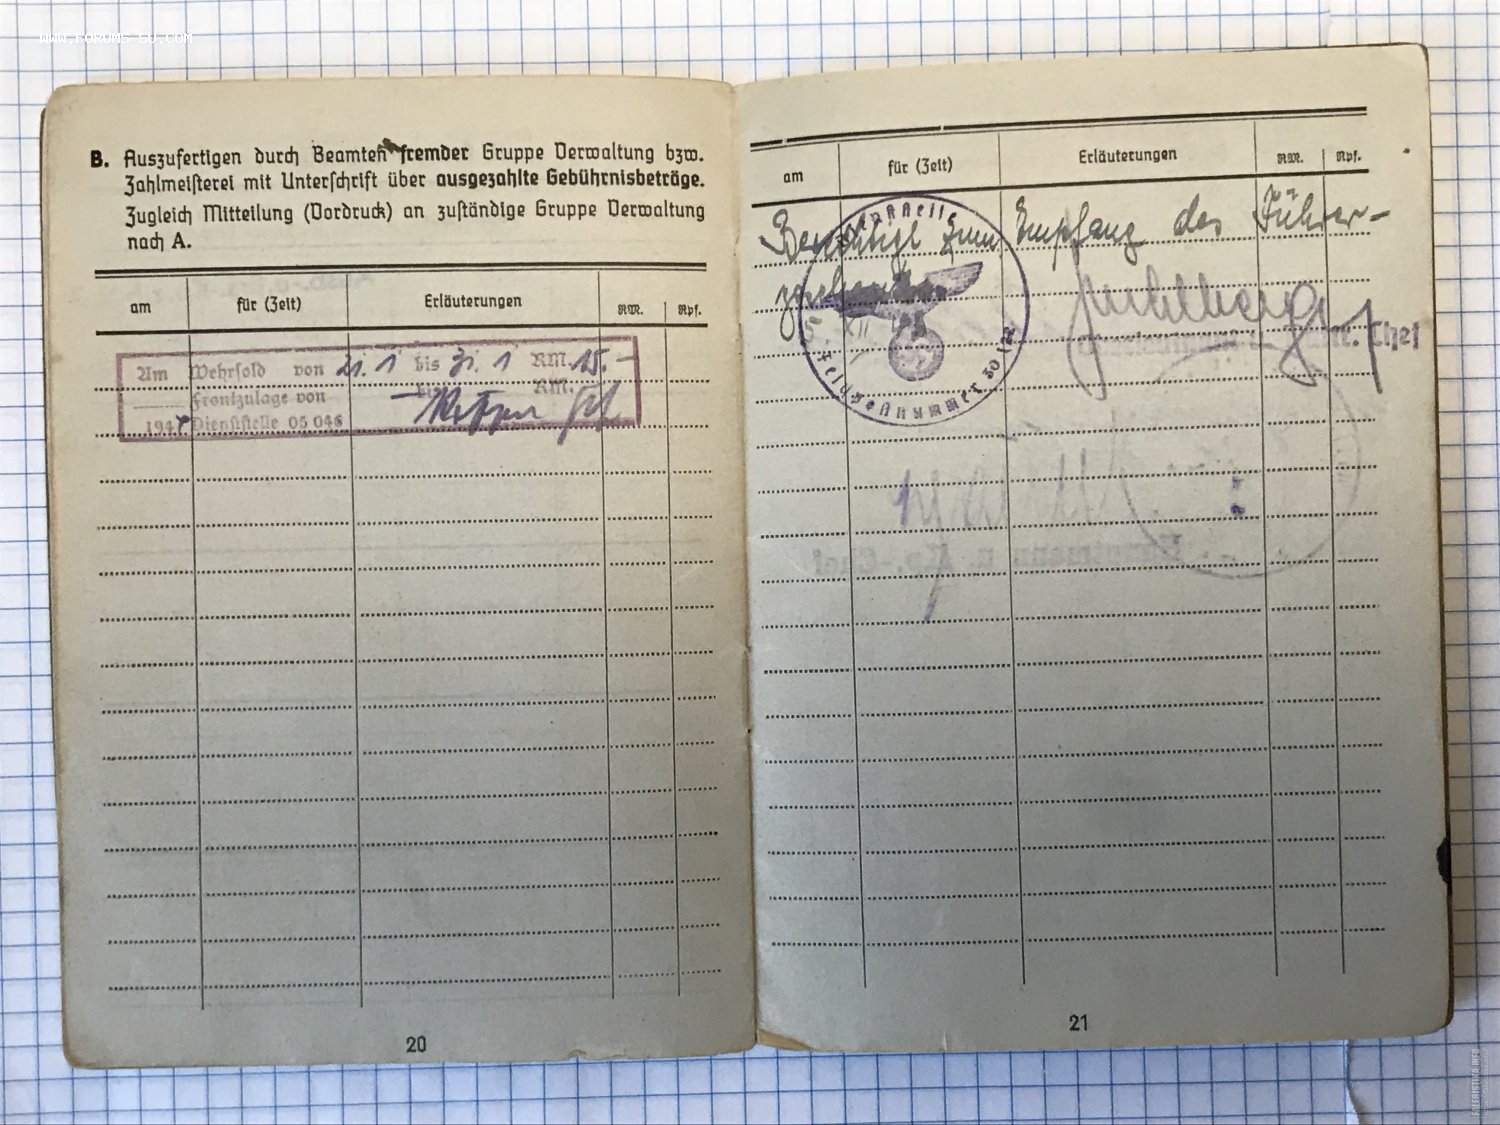 WWW.FORUMS-SU.COM
B. Auszufertigen durch Beamten fremder Gruppe Verwaltung bzw.
Zahlmeisterei mit Unterschrift über ausgezahlte Gebührnisbeträge.
Zugleich Mitteilung (Vordruck) an zuständige Gruppe Verwaltung
nach A.
am für (Zeit) Erläuterungen RM. Rpf.
Am Wehrsold von 21. 1 bis 31. 1 RM. 15.-
Frontzulage von RM.
194 Dienststelle 05 046
20
am für (Zeit) Erläuterungen RM. Rpf.
Berechtigt zum Empfang des Führer-
Dienststelle
Feldpostnummer
Chef
21
FALERISTIKA.INFO